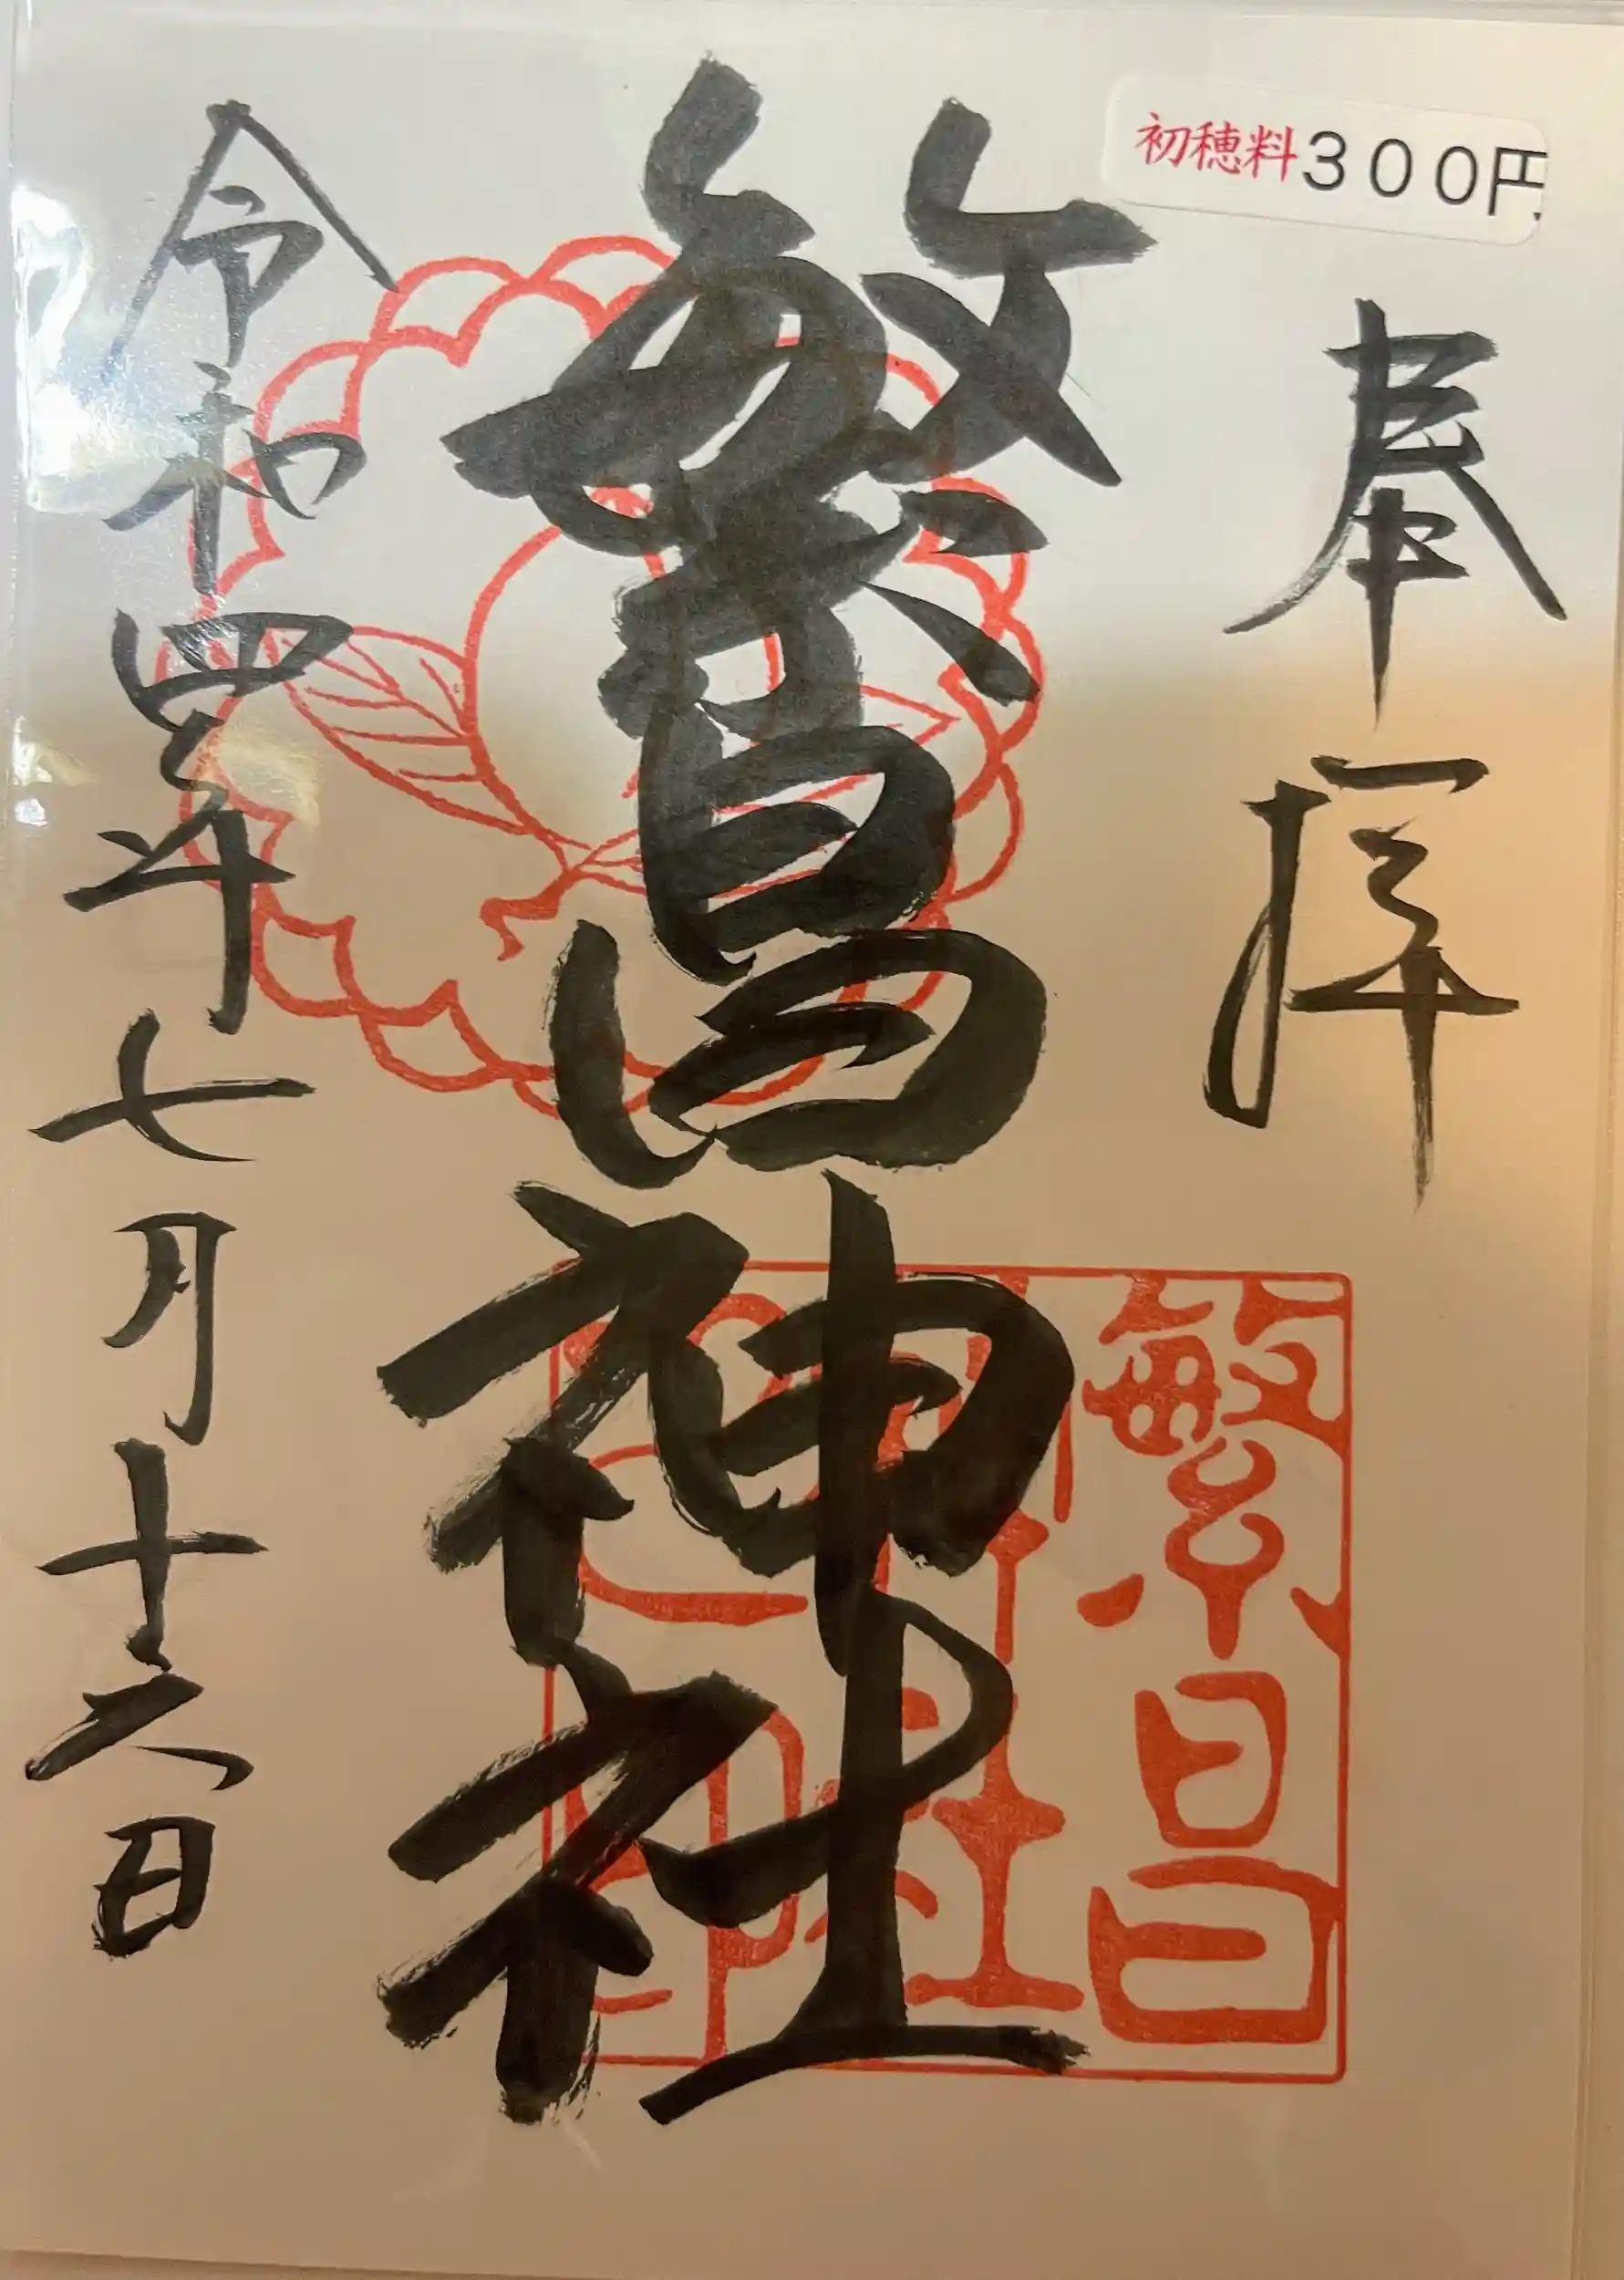 初穂料300円
奉拝
繁昌神社
繁昌
社
令和四年七月十六日